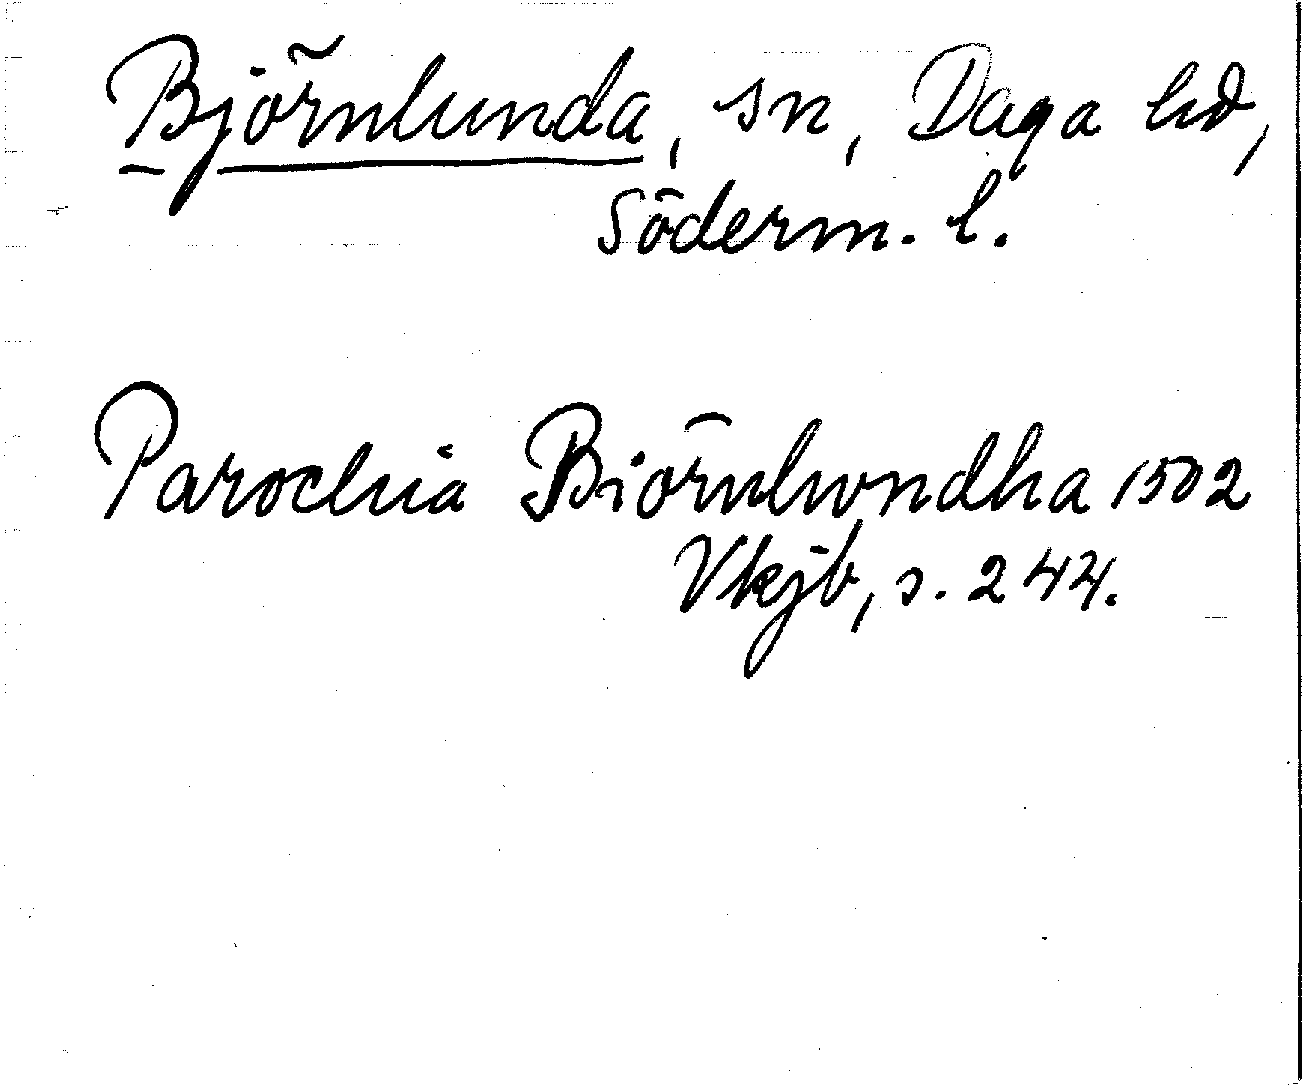 Björnlunda, sn, Daga hd,
Söderm. l.
Parochia Biörnlwndha 1502
Vkjb, s. 244.